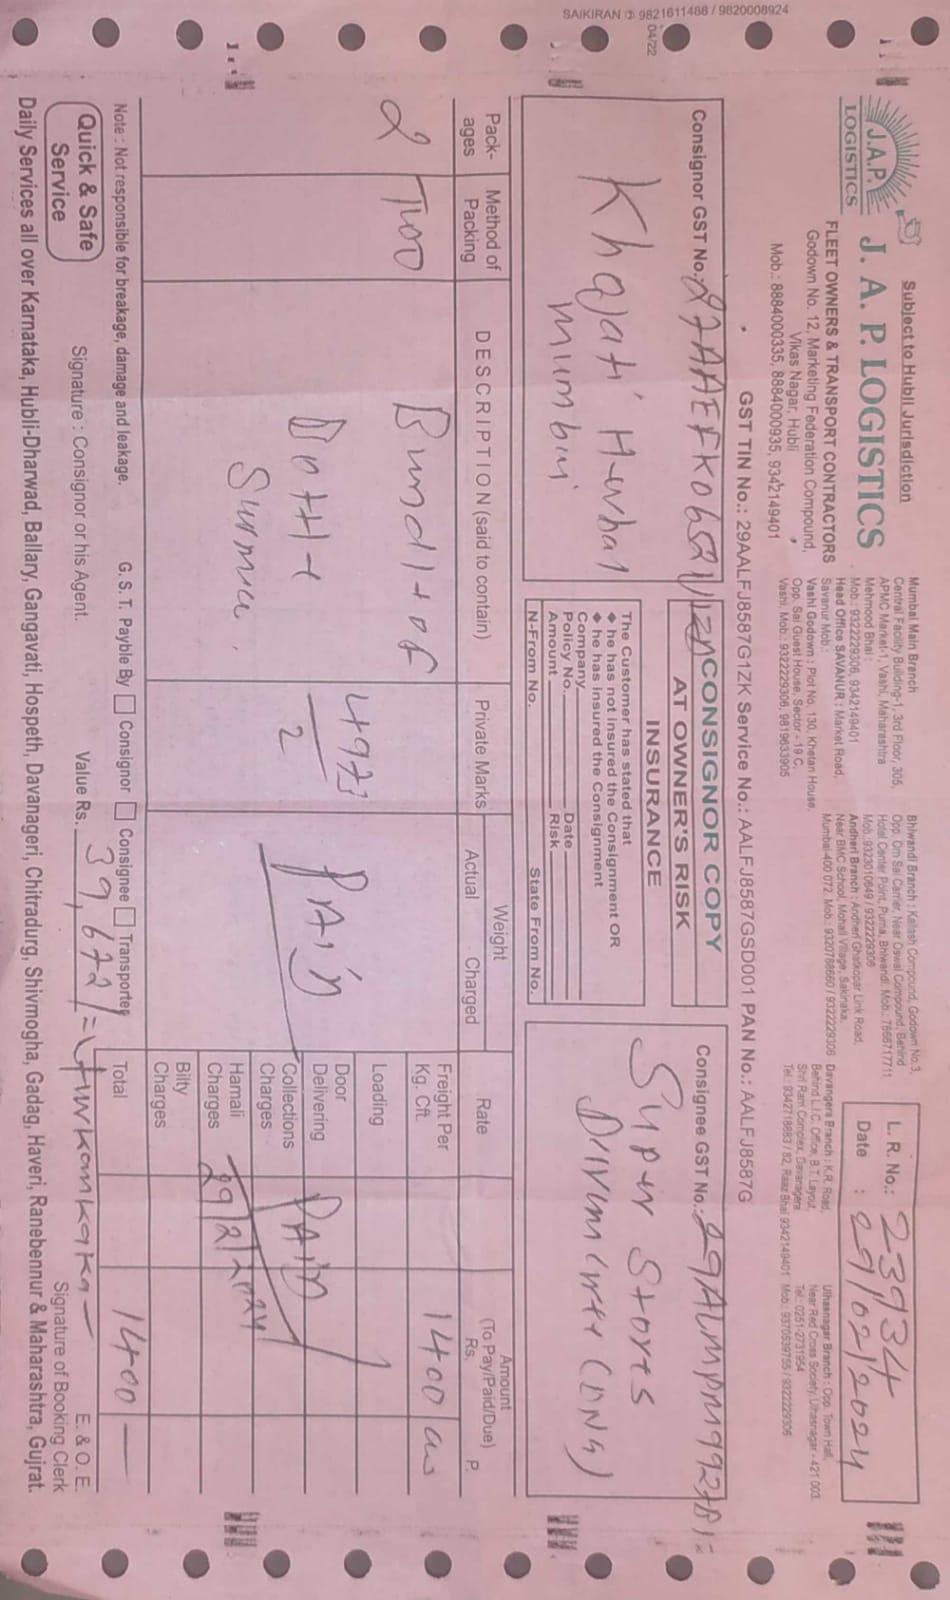 SAIKIRAN ✆ 9821611488 / 9820008924
04/22
Subject to Hubli Jurisdiction
J.A.P.
LOGISTICS
J. A. P. LOGISTICS
FLEET OWNERS & TRANSPORT CONTRACTORS
Godown No. 12, Marketing Federation Compound,
Vikas Nagar, Hubli
Mob.: 8884000335, 8884000935, 9342149401
Mumbai Main Branch
Central Facility Building-1, 3rd Floor, 305,
APMC Market-1, Vashi, Maharashtra
Mehmood Bhai :
Mob.: 9322229306, 9342149401
Head Office SAVANUR : Market Road,
Savanur Mob.:
Vashi Godown : Plot No. 130, Khetan House,
Opp. Sai Guest House, Sector - 19 C,
Vashi. Mob.: 9322229306, 9819633905
Bhiwandi Branch : Kailash Compound, Godown No.3,
Opp. Om Sai Carrier, Near Oswal Compound, Behind
Hotel Center Point, Purna, Bhiwandi. Mob.: 7666717711
Mob.: 9323010649 / 9322229306
Andheri Branch : Andheri Ghatkopar Link Road,
Near BMC School, Mohali Village, Sakinaka,
Mumbai-400 072, Mob.: 9320788660 / 9322229306
Davangere Branch : K.R. Road,
Behind L.I.C. Office, B.T. Layout,
Shri Ram Complex, Davanagere
Tel.: 9342718683 / 82, Raaz Bhai 9342149401
Ulhasnagar Branch : Opp. Town Hall,
Near Red Cross Society, Ulhasnagar - 421 003.
Tel.: 0251-2731954
Mob.: 9370539755 / 9322229306
L. R. No.: 23934
Date : 29/02/2024
GST TIN No.: 29AALFJ8587G1ZK Service No.: AALFJ8587GSD001 PAN No.: AALFJ8587G
Consignor GST No.:
Khojati Herbal
Mumbai
CONSIGNOR COPY
AT OWNER'S RISK
INSURANCE
The Customer has stated that
◆ he has not insured the Consignment OR
◆ he has insured the Consignment
Company
Policy No. Date
Amount Risk
N-From No. State From No.
Consignee GST No.:
Super Stores
Pack-
ages
Method of
Packing
DESCRIPTION (said to contain)
Private Marks
Weight
Actual Charged
Rate
Amount
(To Pay/Paid/Due)
Rs. P.
2 Two Bundl+of 4973
2
Bottle
Surma
PAID
Freight Per
Kg. Cft.
1400/
Loading
Door
Delivering
Collections
Charges
PAID
Hamali
Charges
29/2/2024
Bilty
Charges
Total 1400
Note : Not responsible for breakage, damage and leakage.
G. S. T. Payble By Consignor Consignee Transporter
Quick & Safe
Service
Signature : Consignor or his Agent.
Value Rs. 39,672/=
E. & O. E.
Signature of Booking Clerk
Daily Services all over Karnataka, Hubli-Dharwad, Ballary, Gangavati, Hospeth, Davanageri, Chitradurg, Shivmogha, Gadag, Haveri, Ranebennur & Maharashtra, Gujrat.